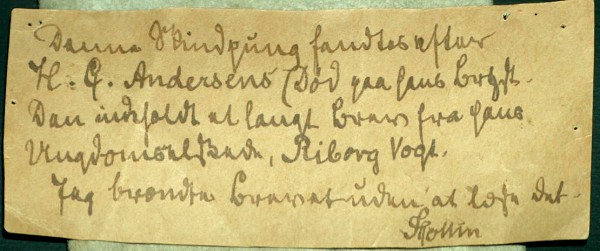 Denne Skindpung fandtes efter
H. C. Andersens Død paa hans Bryst.
Den indholdt et langt Brev fra hans
Ungdomselskede, Riborg Vogt.
Jeg brændte Brevet uden at læse det.